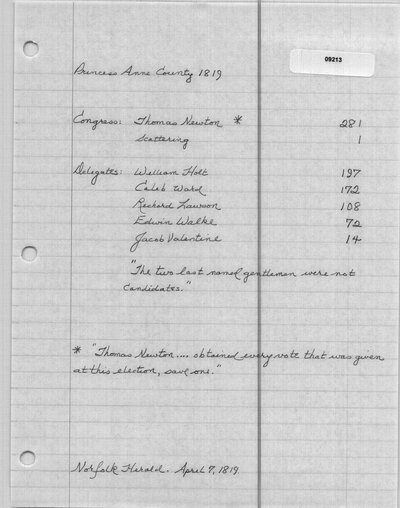 09213
Princess Anne County 1819
Congress: Thomas Newton * 281
Scattering 1
Delegates: William Holt 197
Caleb Ward 172
Richard Lawson 108
Edwin Walke 72
Jacob Valentine 14
"The two last named gentleman were not
candidates."
* "Thomas Newton.... obtained every vote that was given
at this election, save one."
Norfolk Herald. April 7, 1819.